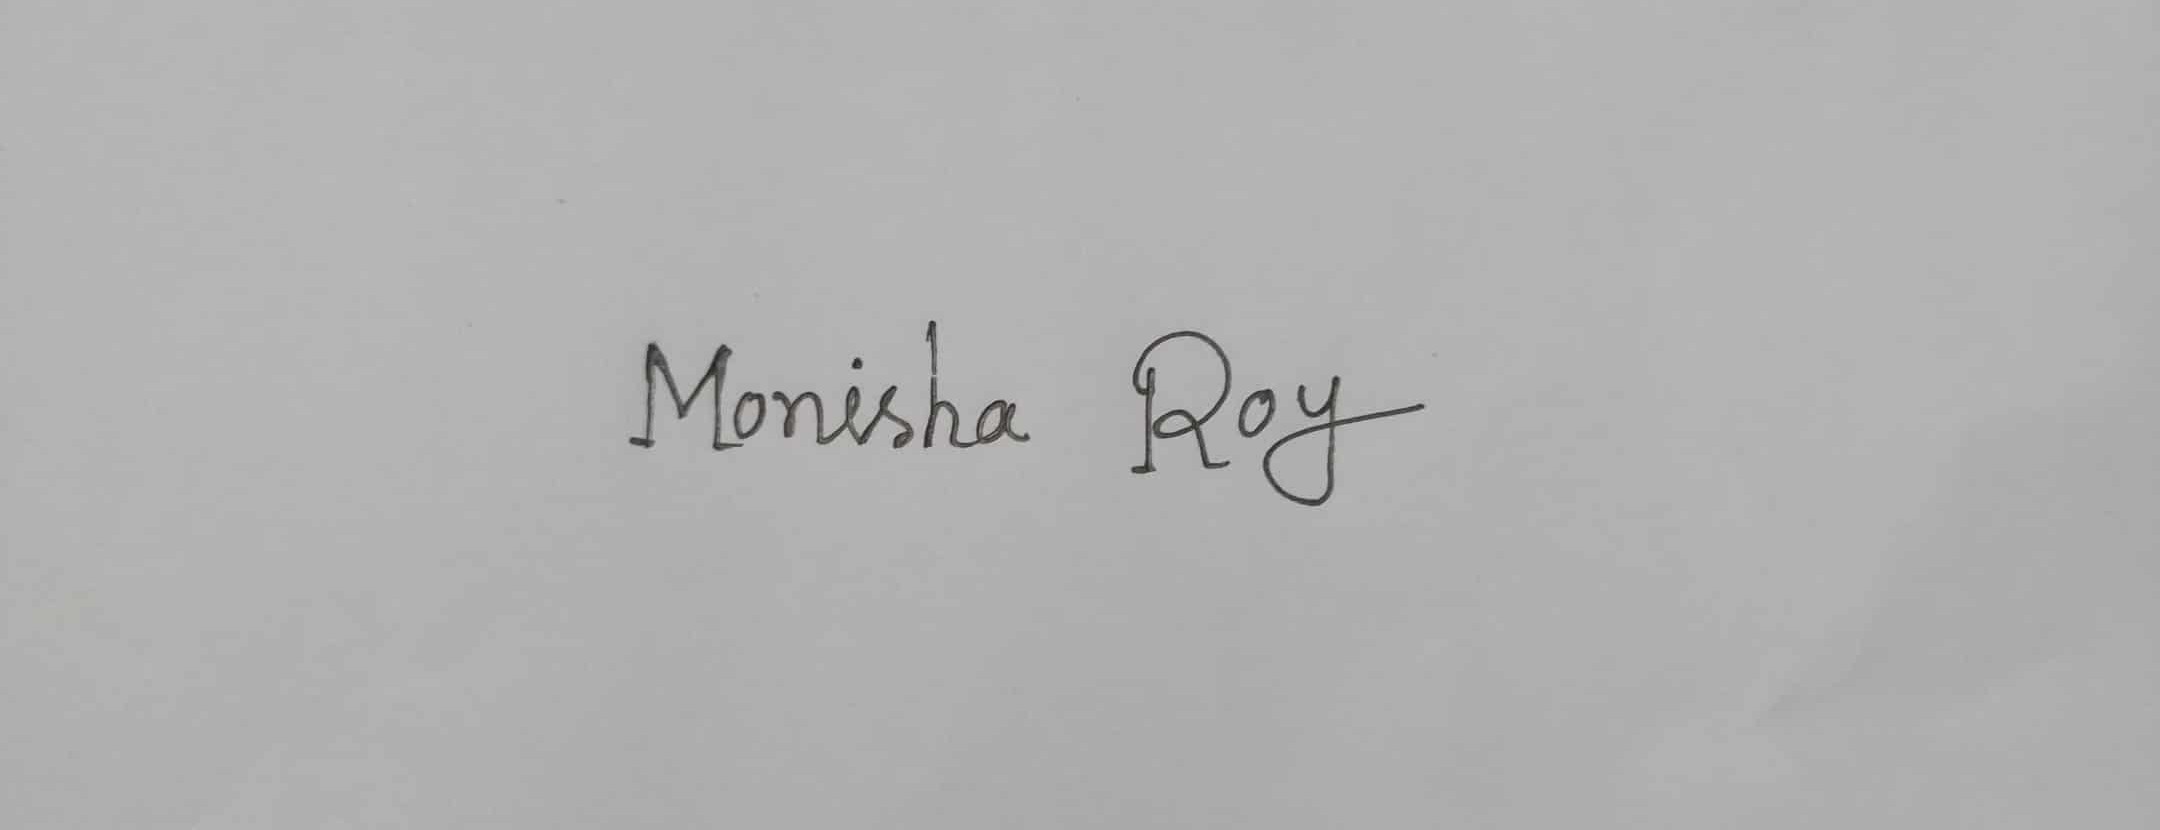 Monisha Roy